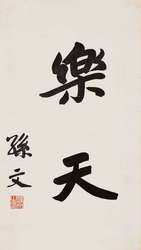 樂天
孫文